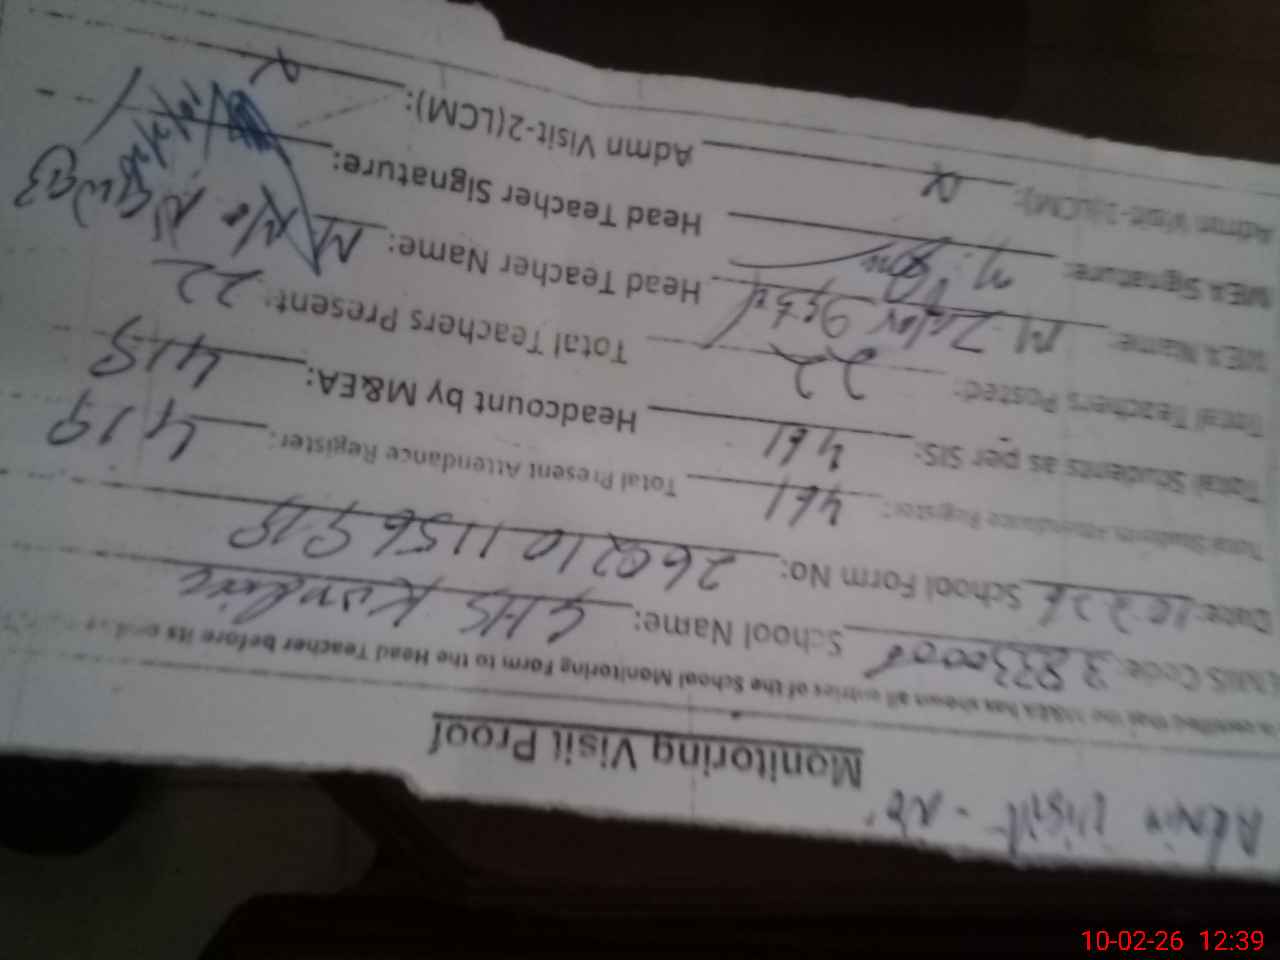 Admin Visit - No
Monitoring Visit Proof
is certified that the M&EA has shown all entries of the School Monitoring Form to the Head Teacher before its
EMIS Code: School Name: GHS
Date: 10.2.26 School Form No: 2602101156518
Total Students Attendance Register: 461 Total Present Attendance Register: 419
Total Students as per SIS: 461 Headcount by M&EA: 418
Total Teachers Posted: 22 Total Teachers Present: 22
MEA Name: M. Zafar Head Teacher Name:
MEA Signature: Head Teacher Signature:
Admn Visit-1(LCM): Admn Visit-2(LCM):
10-02-26 12:39